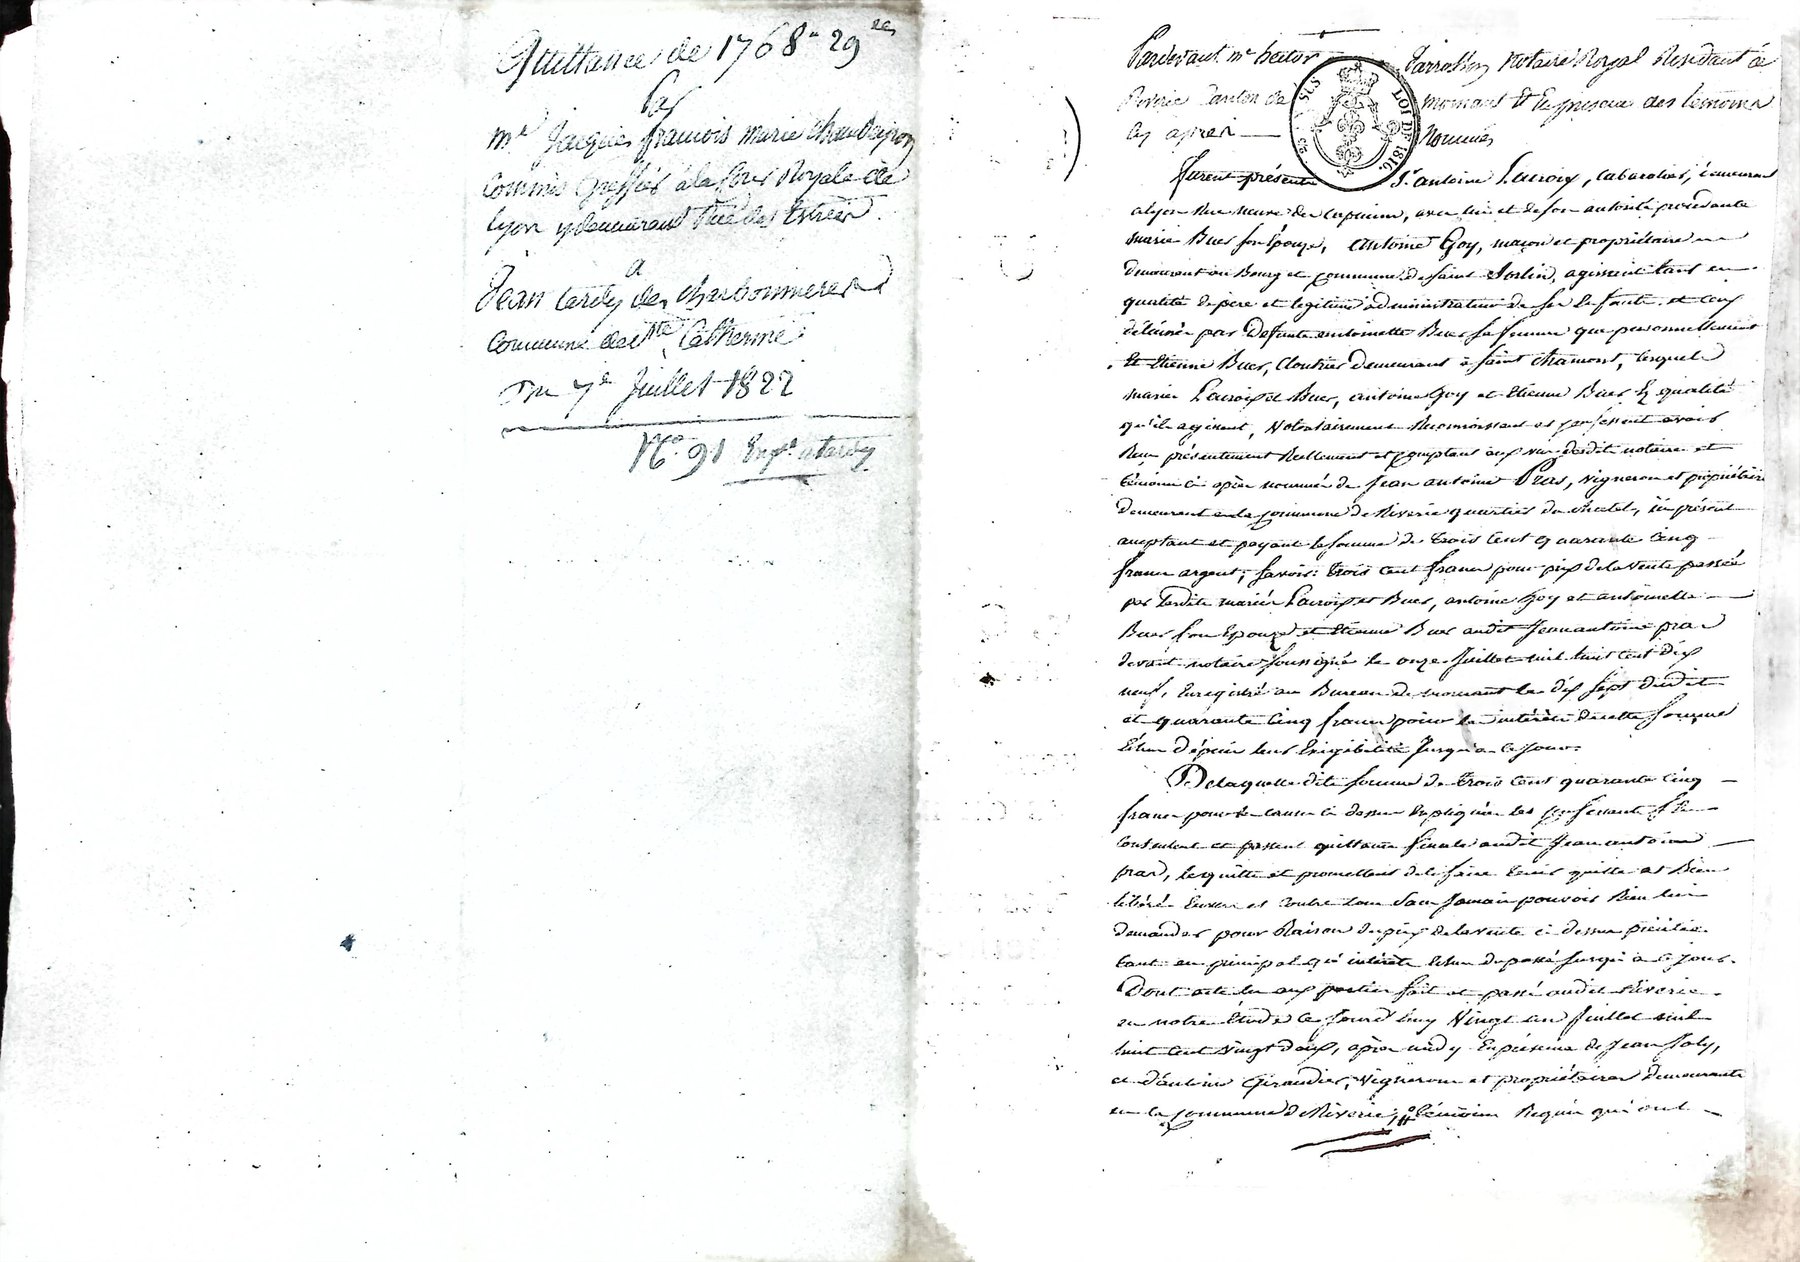 Quittance de 1768 f 29 ces
Par
Me Jacques françois marie Chaudeyron
Commis greffier à la Cour Royale de
Lyon y demeurant Rue des Estrées
a
Jean tardy des charbonnieres
Commune de Ste Catherine
Du 7e Juillet 1822
No. 91 Expn a tardy
Pardevant me hector Parrossin Notaire Royal Residant à
Riverie Canton de mornant Et En presence des temoins
Cy après Nommés
LOI DE 1816
furent présents Sr antoine Lacroix, Cabaretier, demeurant
a lyon Rue neuve des capucins, avec lui et de son autorité procédante
marie Buer son Épouze, antoine Goy, maçon et propriétaire
demeurant au Bourg et commune de saint Sorlin, agissant tant en
qualité de pere et legitime administrateur de ses Enfants et ceux
délaissés par Defunte antoinette Buer sa femme que personnellement
Et Etienne Buer, Cloutier demeurant à saint Chamont, lesquels
mariés Lacroix et Buer, antoine Goy et Etienne Buer Es qualité
qu'ils agissent, volontairement Reconnoissent et confessent avoir
Reçu présentement Réellement et comptant aux vues desdits notaire et
témoins ci après nommés de Jean antoine Pras, vigneron et propriétaire
demeurant en la commune de Riverie quartier du chatel, ici présent
acceptant et payant la somme de trois Cent quarante cinq
francs argent; savoir: trois cent francs pour prix de la vente passée
par lesdits mariés Lacroix et Buer, antoine Goy et antoinette
Buer son Epouze et Etienne Buer audit Jean antoine pras
devant notaire soussigné le onze Juillet mil huit cent dix
neuf, Enregistré au Bureau de mornant le dix sept dudit
et quarante cinq francs pour les intérêts de cette somme
Echus dépuis leur Exigibilité Jusqu'à ce Jour.
De laquelle dite somme de trois Cent quarante cinq
francs pour les causes ci dessus Expliquées les confessants
Concedent et passent quittance finale audit Jean antoine
pras, le quitte et promettent de le faire tenir quitte et Bien
libéré Envers et Contre tous Sans Jamais pouvoir Rien lui
demander pour Raison du prix de la vente ci dessus précitée
tant en principal qu'intérêts Echus du passé Jusqu'à ce Jour.
Dont acte lu aux parties fait et passé audit Riverie
en notre Etude ce Jourd'huy Vingt un Juillet mil
huit cent vingt deux, après midy En présence de Jean Joly,
et d'antoine Giraudier, vignerons et propriétaires demeurants
en la commune de Riverie, témoins Requis qui ont